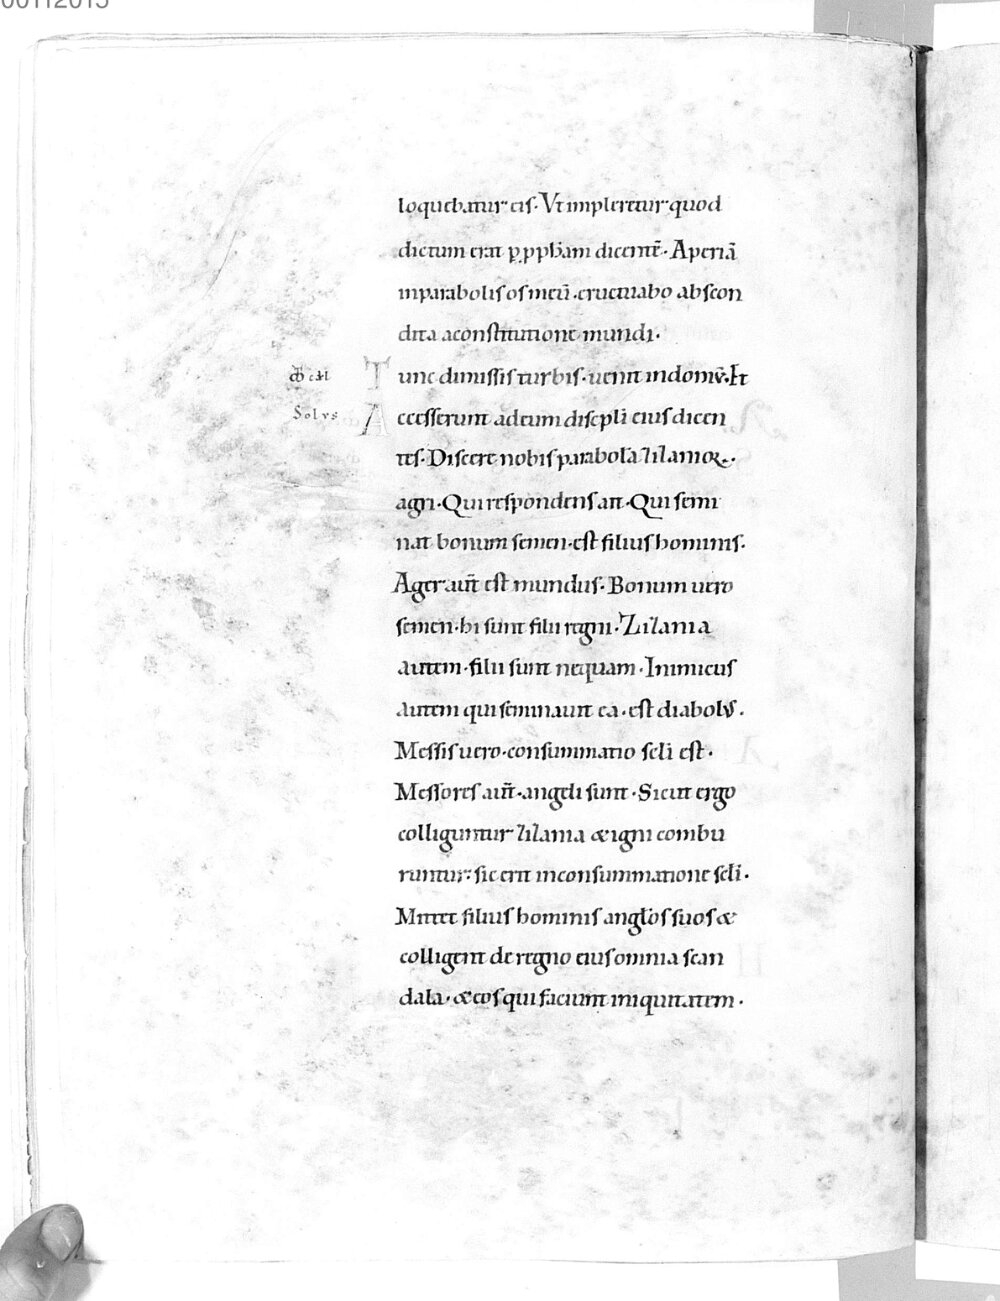 00112015
loquebatur eis. Vt impleretur quod
dictum erat p pph̄am dicentē. Aperiā
inparabolis os meū. eructuabo abscon
dita aconstitutione mundi.
Tunc dimissis turbis. uenit indomū. Et
Solvs Accesserunt adeum discpli eius dicen
tes. Dissere nobis parabolā zizaniorꝝ.
agri. Qui respondens ait. Qui semi
nat bonum semen. est filius hominis.
Ager aut̄ est mundus. Bonum uero
semen. hi sunt filii regni. Zizania
autem. filii sunt nequam. Inimicus
autem qui seminauit ea. est diabolvs.
Messis uero. consummatio scli est.
Messores aut̄. angeli sunt. Sicut ergo
colliguntur zizania & igni combu
runtur: sic erit inconsummatione scli.
Mittet filius hominis anglos suos &
colligent de regno eius omnia scan
dala. & eos qui faciunt iniquitatem.